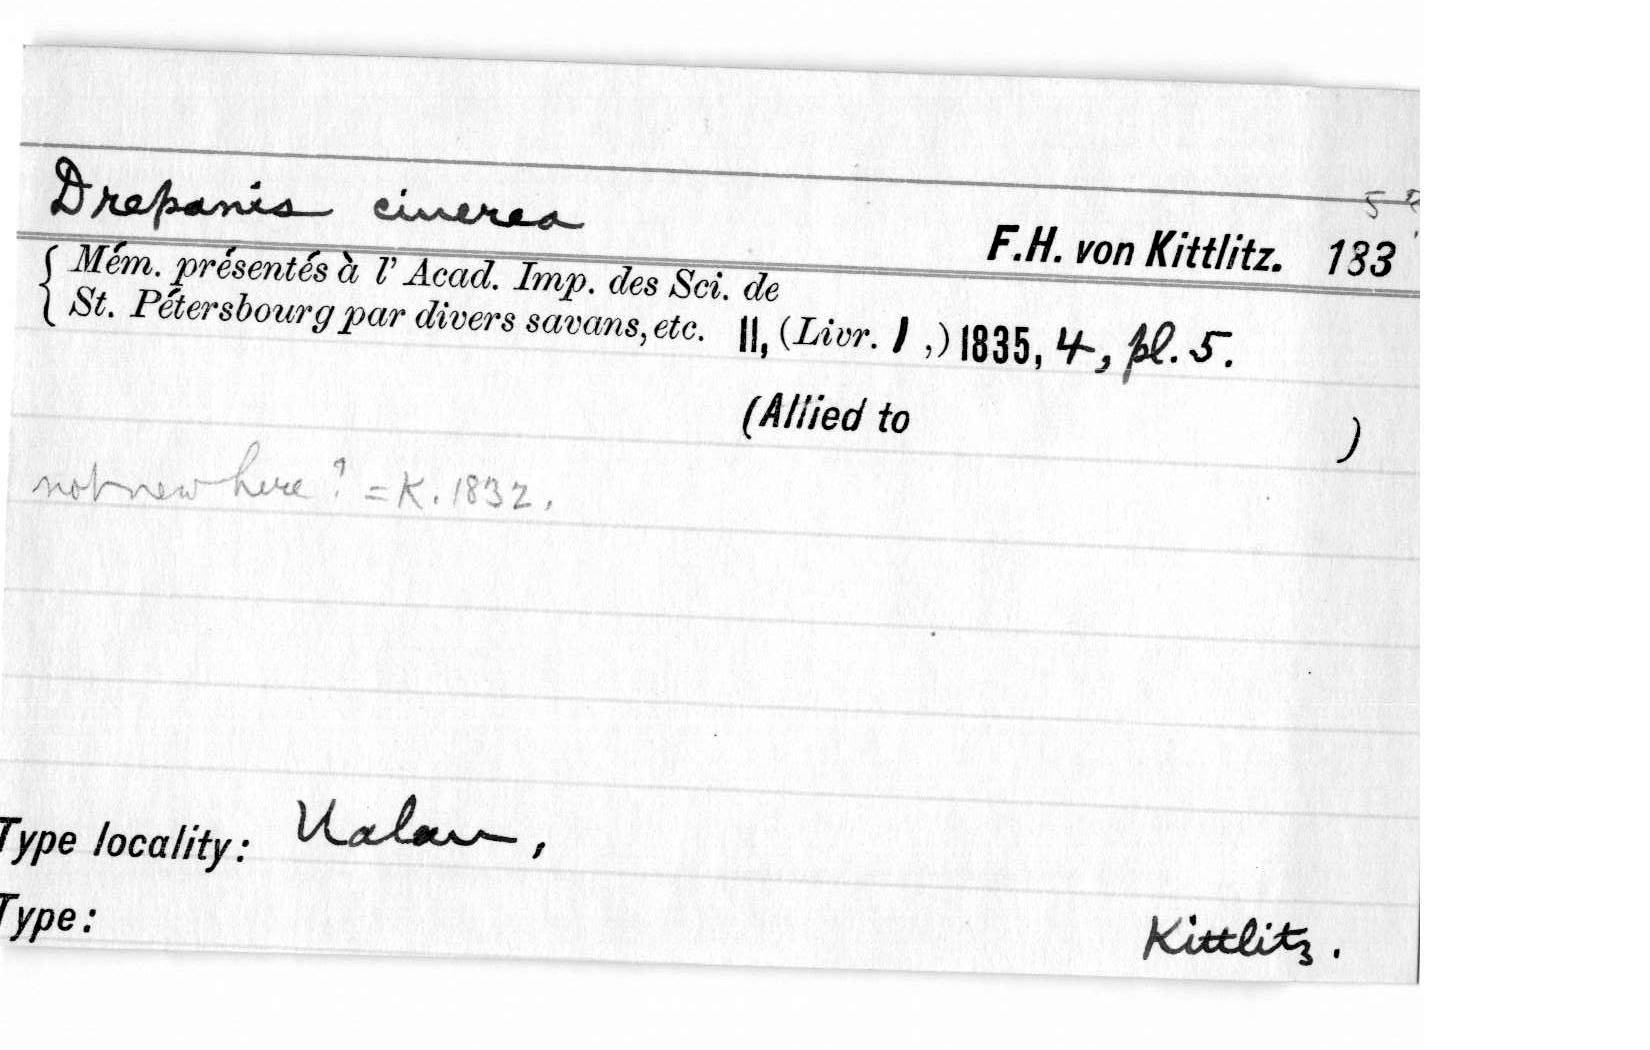 Drepanis cinerea
F.H. von Kittlitz. 183
Mém. présentés à l' Acad. Imp. des Sci. de
St. Pétersbourg par divers savans, etc. II, (Livr. 1 ,) 1835, 4, pl. 5.
(Allied to )
not new here? = K. 1832.
Type locality: Ualan,
Type: Kittlitz.